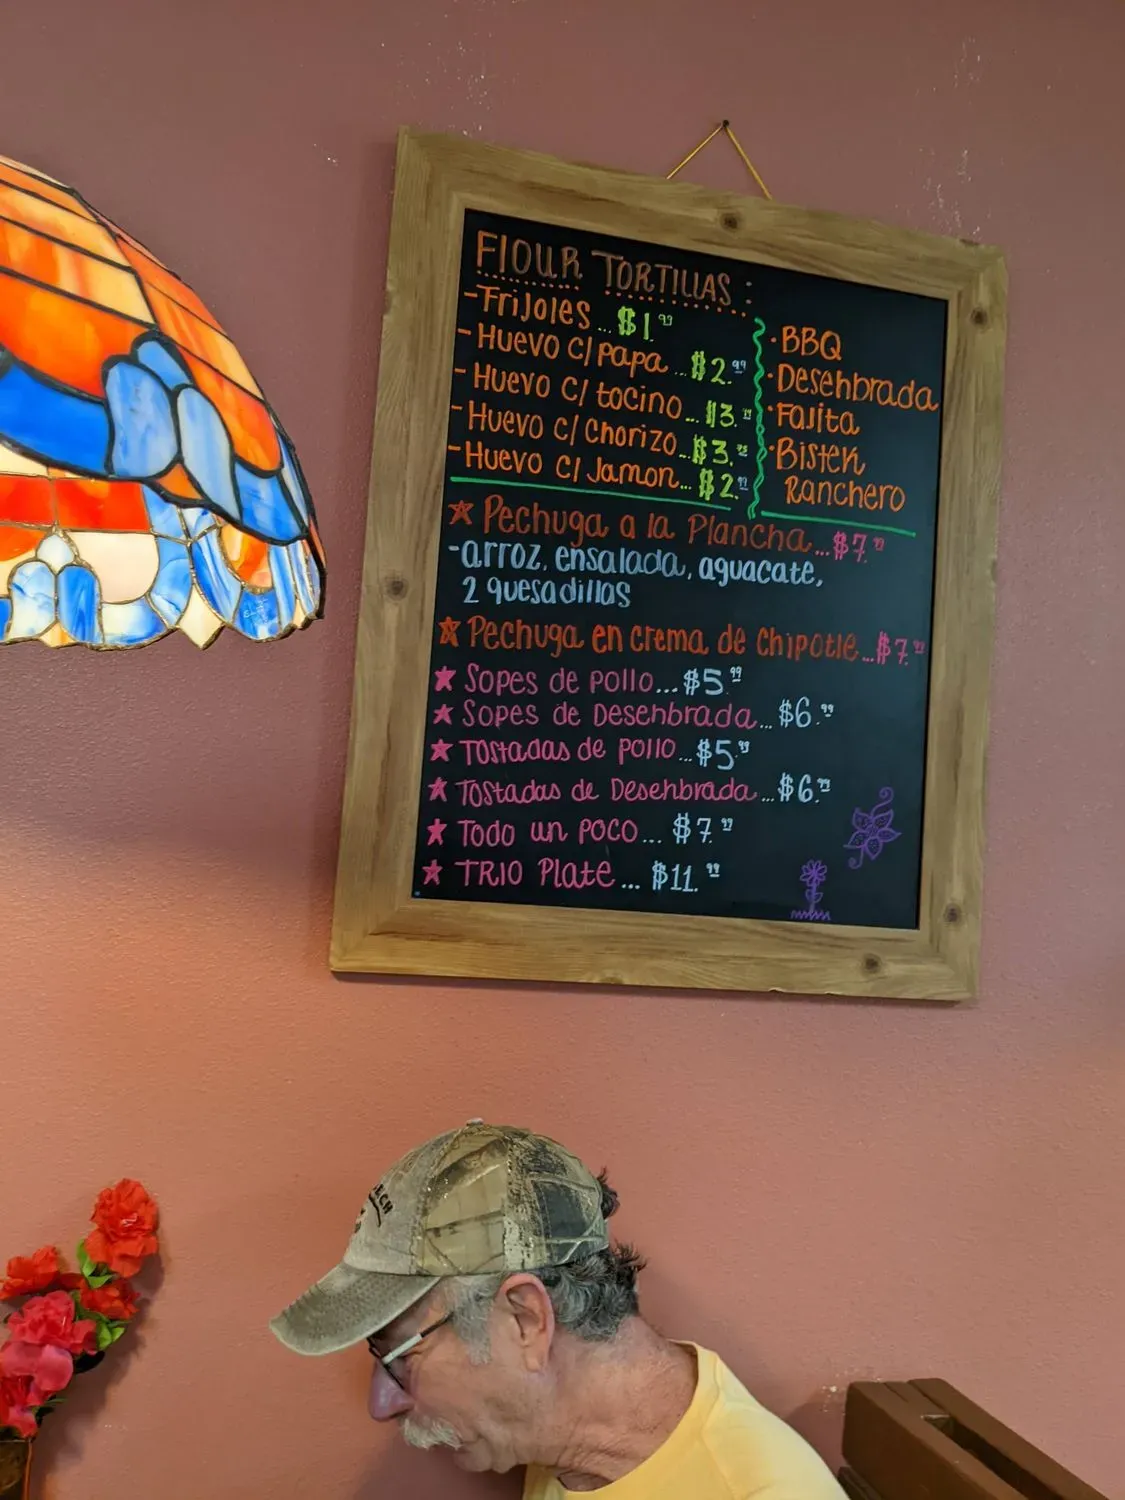 FlOUR TORTILLAS :
-Frijoles...$1.99
-Huevo c/papa...$2.99
-Huevo c/ tocino...$3.99
-Huevo c/ chorizo...$3.99
-Huevo c/ Jamon...$2.99
·BBQ
·Desehbrada
·Fajita
·Bistek
Ranchero
★ Pechuga a la Plancha...$7.99
-arroz, ensalada, aguacate,
2 quesadillas
★ Pechuga en crema de chipotle...$7.99
★ Sopes de pollo...$5.99
★ Sopes de Desehbrada...$6.99
★ Tostadas de pollo...$5.99
★ Tostadas de Desehbrada...$6.99
★ Todo un poco...$7.99
★ TRIO Plate...$11.99